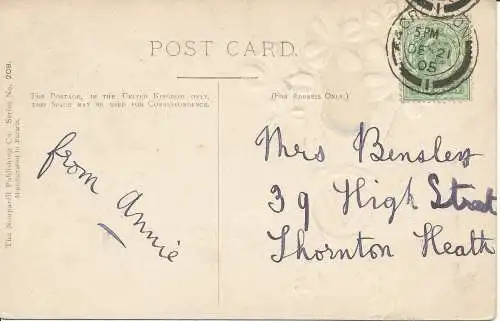 POST CARD.
The Postage, in the United Kingdom only,
this Space may be used for Correspondence.
(For Address Only.)
The Nonpareil Publishing Co. Series No. 209.
Manufactured in Bavaria.
CROYDON
5 PM
DE 21
05
1
from Annie
Mrs Bensley
39 High Street
Thornton Heath